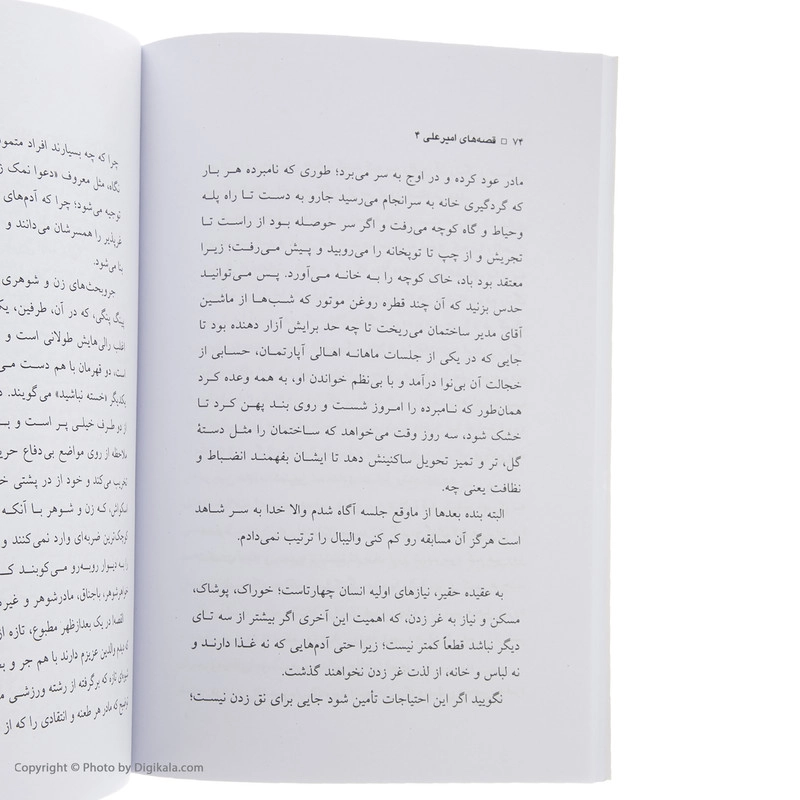 ۷۴ □ قصه‌های امیرعلی ۴
مادر عود کرده و در اوج به سر می‌برد؛ طوری که نامبرده هر بار
که گردگیری خانه به سرانجام می‌رسید جارو به دست تا راه پله
وحیاط و گاه کوچه می‌رفت و اگر سر حوصله بود از راست تا
تجریش و از چپ تا توپخانه را می‌روبید و پیش می‌رفت؛ زیرا
معتقد بود باد، خاک کوچه را به خانه می‌آورد. پس می‌توانید
حدس بزنید که آن چند قطره روغن موتور که شب‌ها از ماشین
آقای مدیر ساختمان می‌ریخت تا چه حد برایش آزار دهنده بود تا
جایی که در یکی از جلسات ماهانه اهالی آپارتمان، حسابی از
خجالت آن بی‌نوا درآمد و با بی‌نظم خواندن او، به همه وعده کرد
همان‌طور که نامبرده را امروز شست و روی بند پهن کرد تا
خشک شود، سه روز وقت می‌خواهد که ساختمان را مثل دستهٔ
گل، تر و تمیز تحویل ساکنینش دهد تا ایشان بفهمند انضباط و
نظافت یعنی چه.
البته بنده بعدها از ماوقع جلسه آگاه شدم والا خدا به سر شاهد
است هرگز آن مسابقه رو کم کنی والیبال را ترتیب نمی‌دادم.
به عقیده حقیر، نیازهای اولیه انسان چهارتاست؛ خوراک، پوشاک،
مسکن و نیاز به غر زدن، که اهمیت این آخری اگر بیشتر از سه تای
دیگر نباشد قطعاً کمتر نیست؛ زیرا حتی آدم‌هایی که نه غذا دارند و
نه لباس و خانه، از لذت غر زدن نخواهند گذشت.
نگویید اگر این احتیاجات تأمین شود جایی برای نق زدن نیست؛
چرا که چه بسیارند افراد متمو
نگاه، مثل معروف «دعوا نمک ز
توجیه می‌شود؛ چرا که آدم‌های
غرپذیر را همسرشان می‌دانند و
بنا می‌شود.
جروبحث‌های زن و شوهری
پینگ پنگی، که در آن، طرفین، یک
اغلب رالی‌هایش طولانی است و
است، دو قهرمان با هم دست می
یکدیگر «خسته نباشید» می‌گویند. د
از دو طرف خیلی پر است و بـ
ملاحظه از روی مواضع بی‌دفاع حریـ
تخریب می‌کند و خود از در پشتی خـ
اسکواش، که زن و شوهر با آنکه
کوچک‌ترین ضربه‌ای وارد نمی‌کنند و
را به دیوار روبه‌رو می‌کوبند کـ
خواهرشوهر، باجناق، مادرشوهر و غیره
القصه! در یک بعدازظهر مطبوع، تازه از
که دیدم والدین عزیزم دارند با هم جر و بـ
شیوه‌ای تازه که برگرفته از رشته ورزشی
توضیح که مادر هر طعنه و انتقادی را که از
Copyright © Photo by Digikala.com